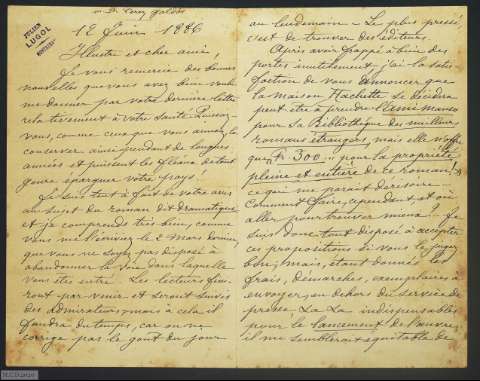 JULIEN
LUGOL
12 Juin 1886
Illustre et cher ami,
Je vous remercie des bonnes
nouvelles que vous avez bien voulu
me donner par votre dernière lettre
relativement à votre santé. Puissiez-
vous, comme ceux que vous aimez, la
conserver ainsi pendant de longues
années et puissent les fléaux de tout
genre épargner votre pays!
Je suis tout à fait de votre avis
au sujet du roman dit dramatique
et je comprends très bien, comme
vous me l'écrivez le 2 Mars dernier,
que vous ne soyez pas disposé à
abandonner la voie dans laquelle
vous êtes entré. Les lecteurs fini-
ront par venir et seront suivis
des admirateurs; mais à cela il
faudra du temps, car on ne
corrige pas le goût du jour
au lendemain. Le plus pressé
c'est de trouver des éditeurs.
Après avoir frappé à bien des
portes inutilement, j'ai la satis-
faction de vous annoncer que
la maison Hachette se décidera
peut être à prendre l'Ami Manso
pour sa Bibliothèque des meilleurs
romans étrangers, mais elle n'offre
que 300 pour la propriété
pleine et entière de ce roman,
ce qui me paraît dérisoire.
Comment faire, cependant, et où
aller pour trouver mieux? Je
suis donc tout disposé à accepter
ces propositions si vous le jugez
bon; mais, étant donnés les
frais, démarches, exemplaires à
envoyer, en dehors du service de
presse, indispensables
pour le lancement de l'œuvre,
il me semblerait équitable de
M.C.D. 2020